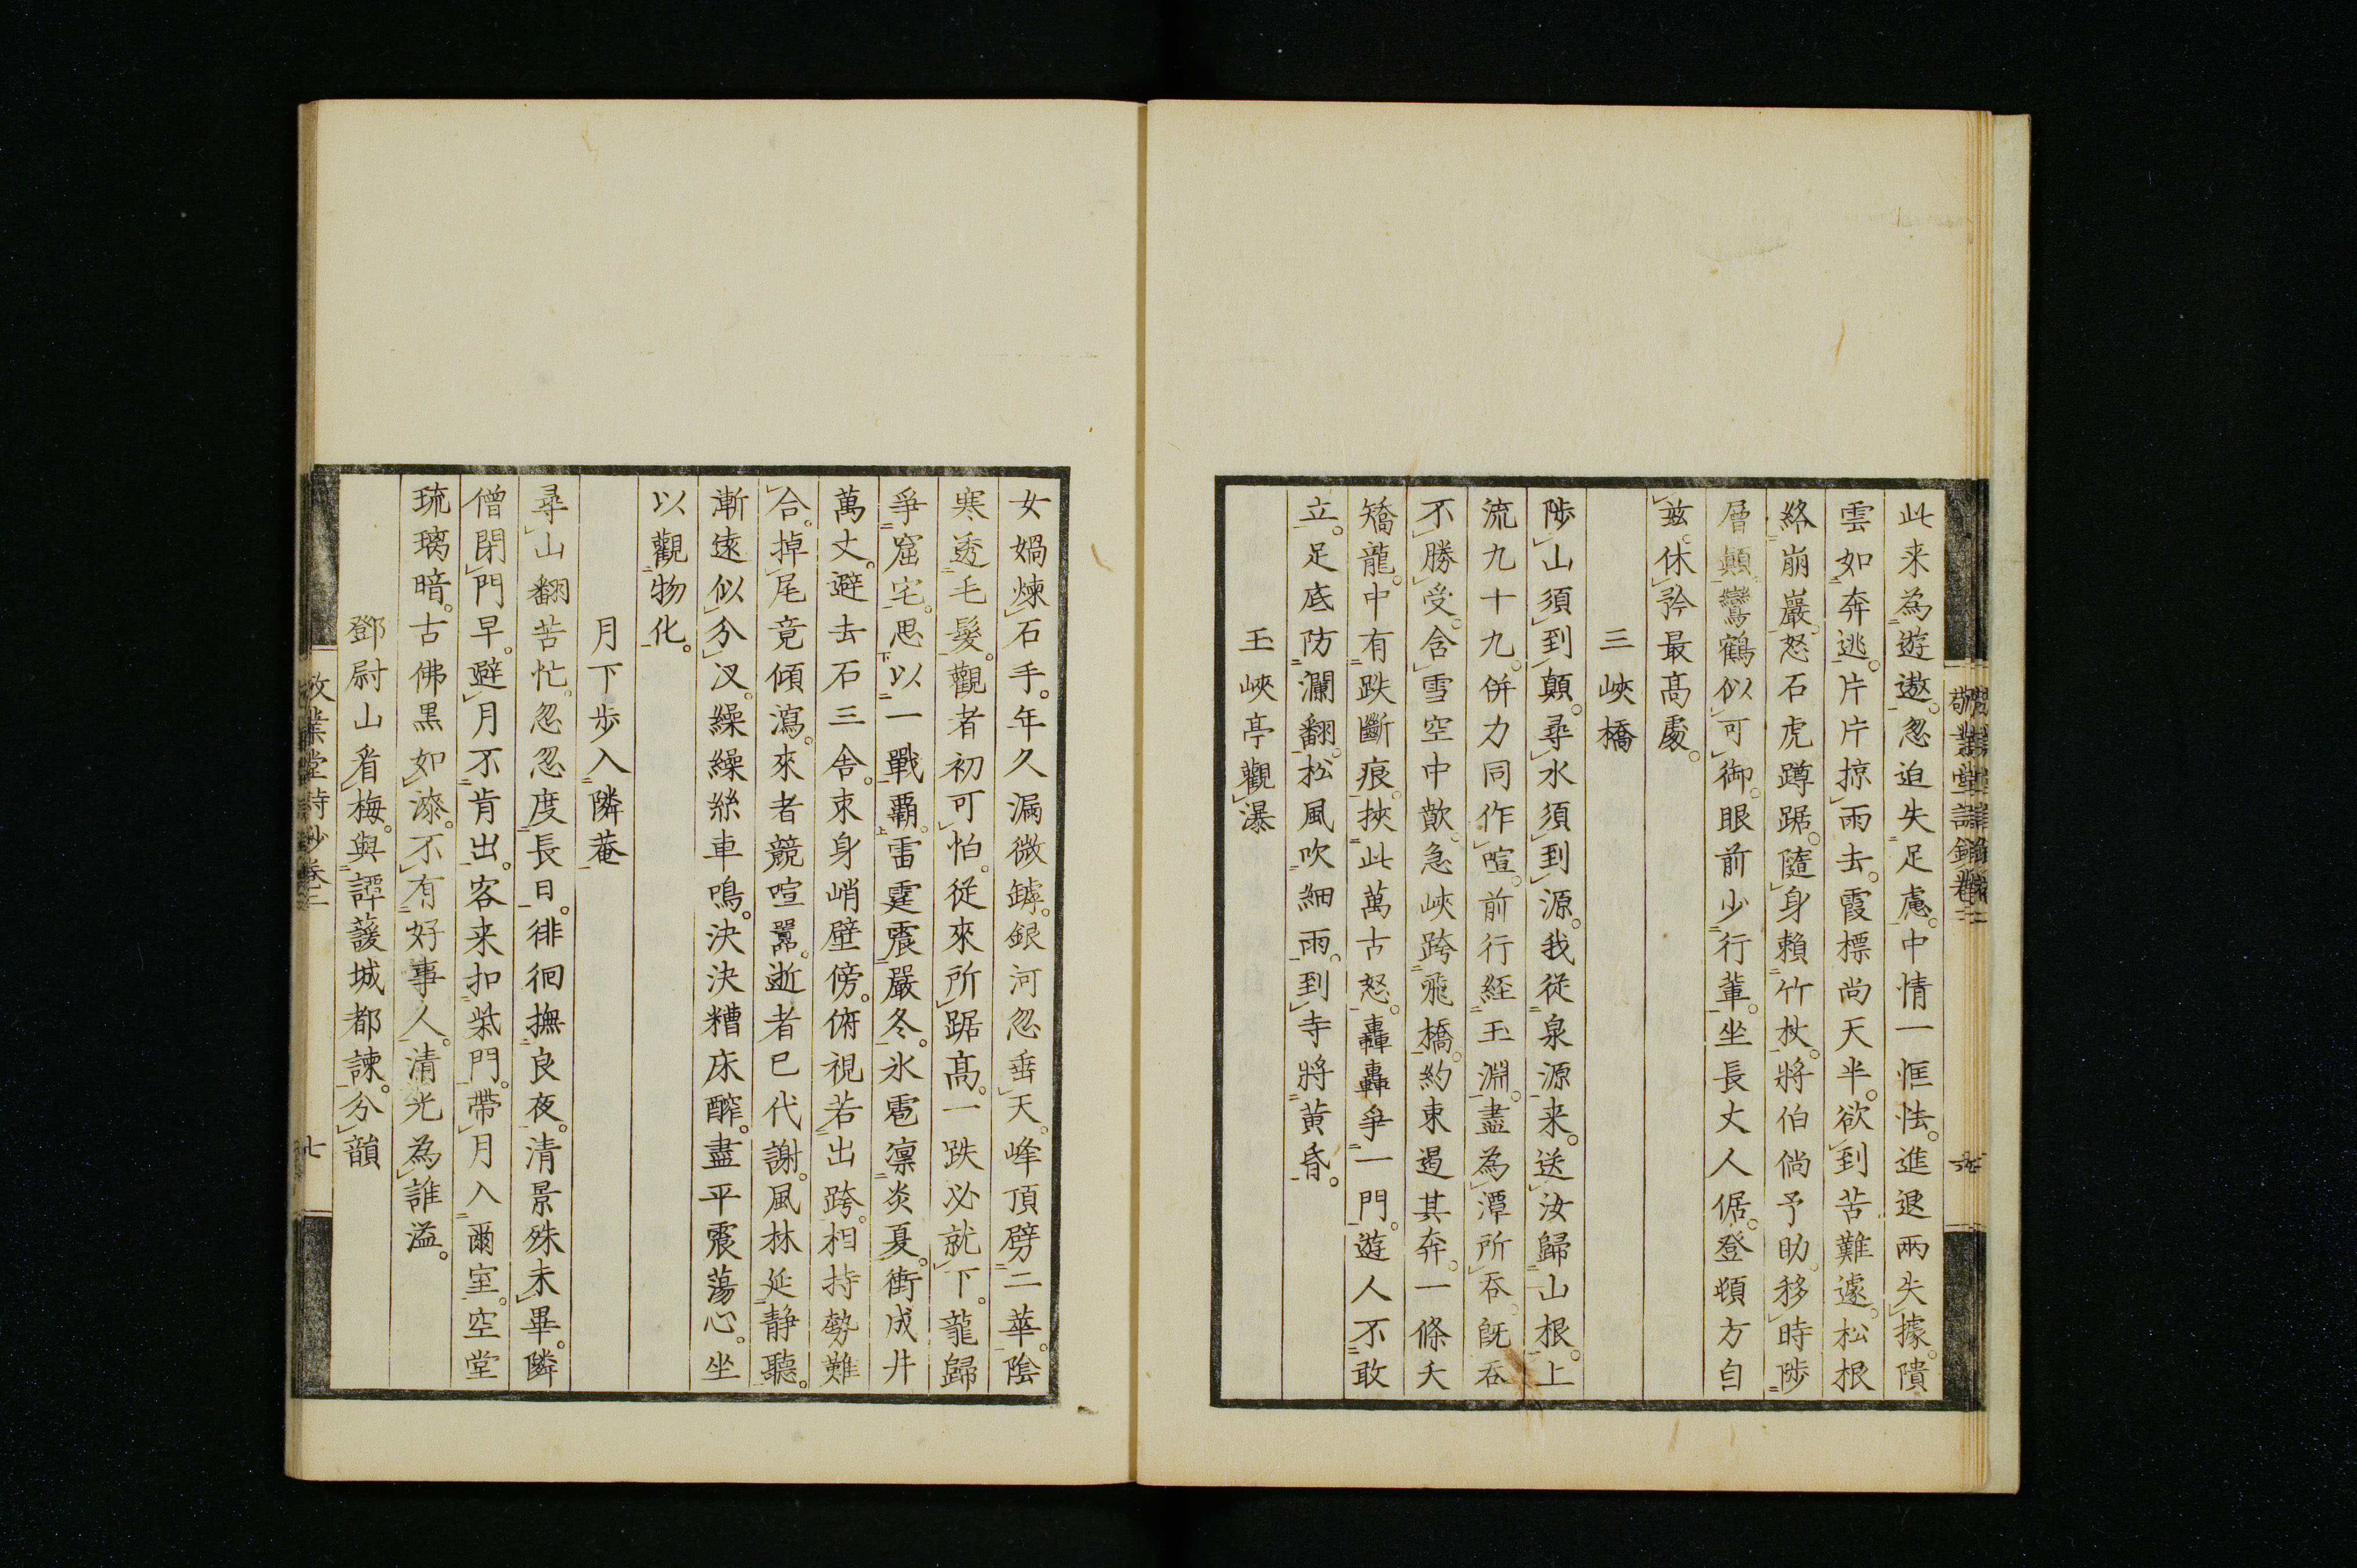 此来為遊遨。忽迫失足慮。中情一恇怯。進退兩失據。隤
雲如奔逃。片片掠雨去。霞標尚天半。欲到苦難遽。松根
絡崩巖。怒石虎蹲踞。隨身賴竹杖。將伯倘予助。移時陟
層顛。鸞鶴似可御。眼前少行輩。坐長丈人倨。登頓方自
茲。休矜最高處。
三峽橋
陟山須到顛。尋水須到源。我從泉源来。送汝歸山根。上
流九十九。併力同作喧。前行経玉淵。盡為潭所吞。既吞
不勝受。含雪空中歕。急峽跨飛橋。約束遏其奔。一條夭
矯龍。中有跌斷痕。挾此萬古怒。轟轟爭一門。遊人不敢
立。足底防瀾翻。松風吹細雨。到寺將黄昏。
玉峽亭觀瀑
女媧煉石手。年久漏微罅。銀河忽垂天。峰頂劈二華。陰
寒透毛髮。觀者初可怕。從來所踞高。一跌必就下。龍歸
爭窟宅。思以一戰覇。雷霆震嚴冬。氷雹凛炎夏。衝成井
萬丈。避去石三舍。束身峭壁傍。俯視若出跨。相持勢難
合。掉尾竟傾瀉。來者競喧嚣。逝者已代謝。風林延静聽。
漸遠似分汊。繰繰絲車鳴。決決糟床醡。盡平震蕩心。坐
以觀物化。
月下歩入隣菴
尋山翻苦忙。忽忽度長日。徘徊撫良夜。清景殊未畢。隣
僧閉門早。避月不肯出。客来扣柴門。帶月入爾室。空堂
琉璃暗。古佛黒如漆。不有好事人。清光為誰溢。
鄧尉山看梅。與譚護城都諫。分韻
敬業堂詩鈔卷二
七